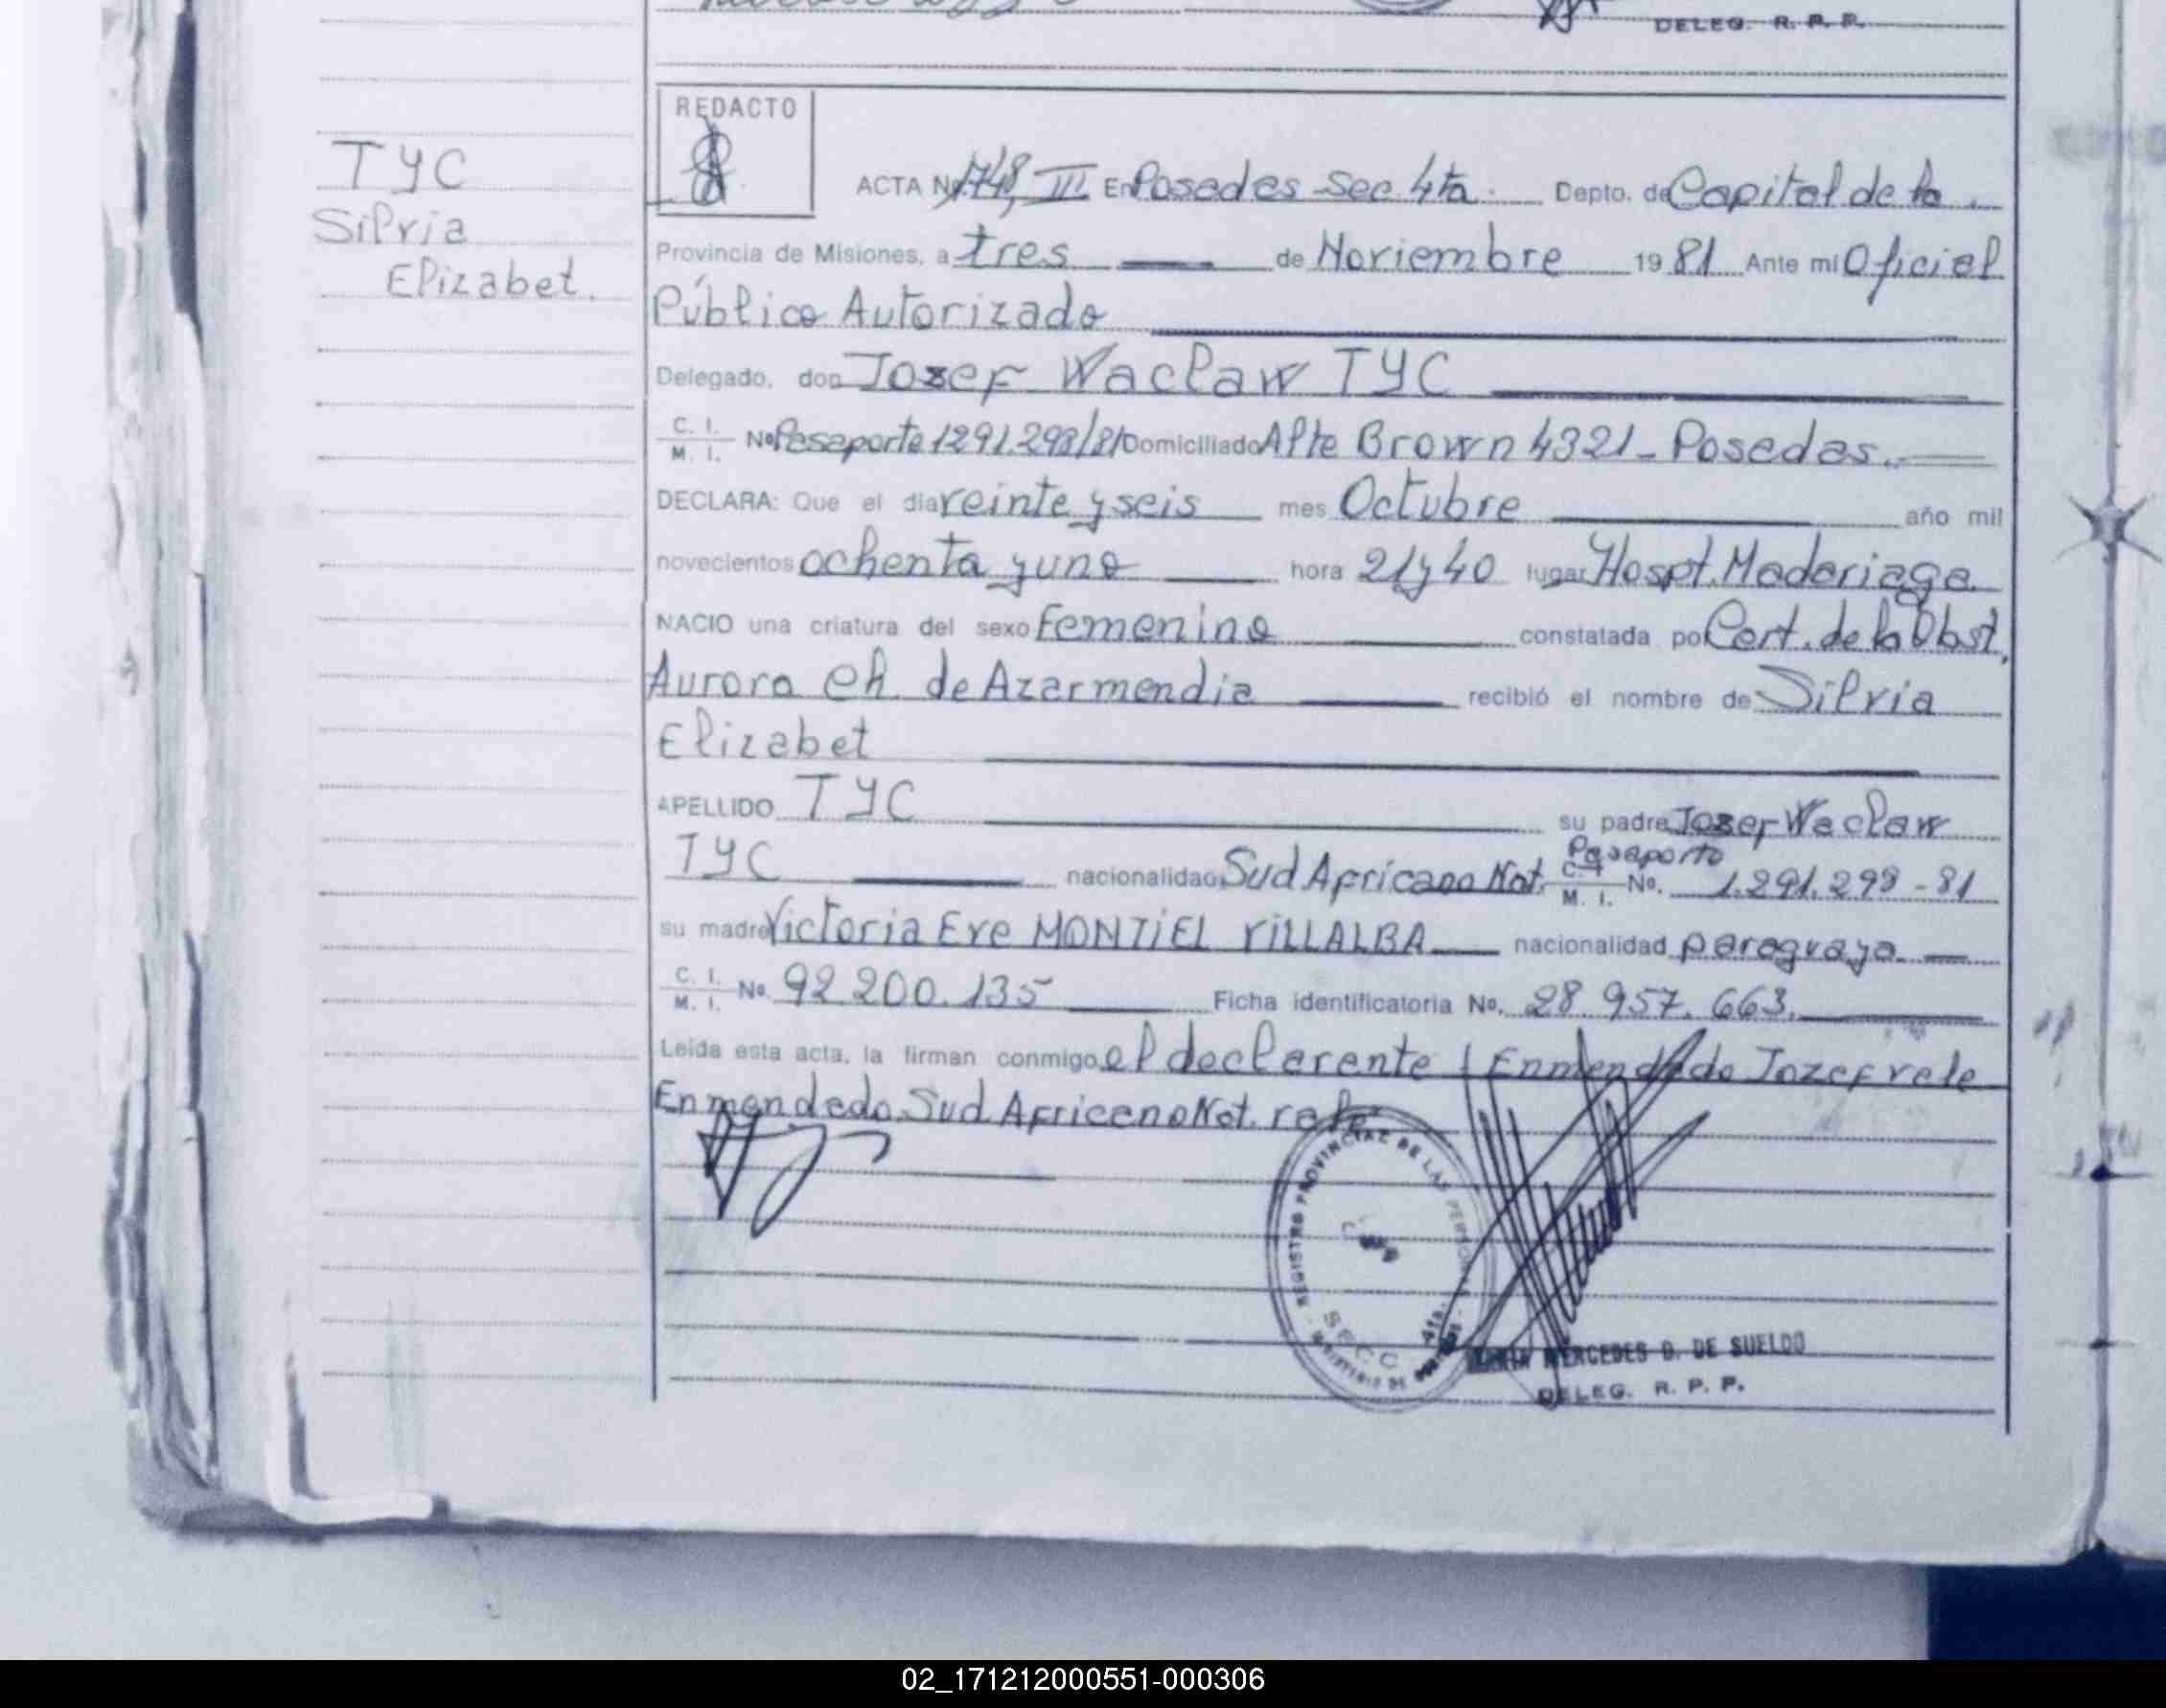 DELEG. R. P. P.
REDACTO
TYC
Silvia
Elizabet.
ACTA Nº 1748, III En Posadas Sec. 4ta. Depto. de Capital de la
Provincia de Misiones, a tres de Noviembre 1981 Ante mí Oficial
Público Autorizado
Delegado, don Jozef Waclaw TYC
C. I. M. I. Nº Pasaporte 1291.298/81 Domiciliado Alte Brown 4321 - Posadas.
DECLARA: Que el día veinte y seis mes Octubre año mil
novecientos ochenta y uno hora 21 y 40 lugar Hospt. Madariaga
NACIO una criatura del sexo Femenino constatada por Cert. de la Obst.
Aurora Ch. de Azarmendia recibió el nombre de Silvia
Elizabet
APELLIDO TYC su padre Jozef Waclaw
TYC nacionalidad Sud Africano Nat. Pasaporte C. I. M. I. No. 1.291.298-81
su madre Victoria Eve MONTIEL VILLALBA nacionalidad paraguaya
C. I. M. I. No. 92.200.135 Ficha identificatoria No. 28.957.663.
Leída esta acta, la firman conmigo el declarante / Enmendado Jozef vale
Enmendado Sud Africano Nat. vale
REGISTRO PROVINCIAL DE LAS PERSONAS
SECC 4ta.
MERCEDES D. DE SUELDO
DELEG. R. P. P.
02_171212000551-000306